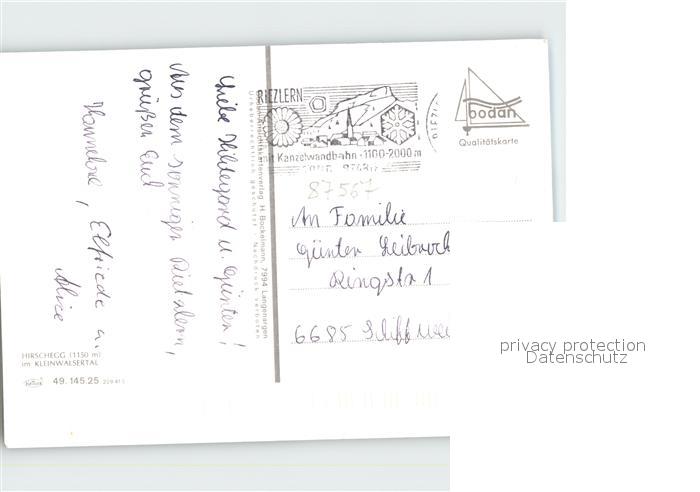 Liebe Hildegard u. Günter!
Aus dem sonnigen Rietzlern,
grüßen Euch
Hannelore, Elfriede u.
Alice
HIRSCHEGG (1150 m)
im KLEINWALSERTAL
49.145.25
Ansichtskartenverlag H. Bockelmann, 7994 Langenargen
Urheberrechtlich geschützt - Nachdruck verboten
RIEZLERN
mit Kanzelwandbahn · 1100-2000 m
bodan
Qualitätskarte
87567
An Familie
Günter Leibrock
Ringstr 1
6685 Schiffwei
privacy protection
Datenschutz